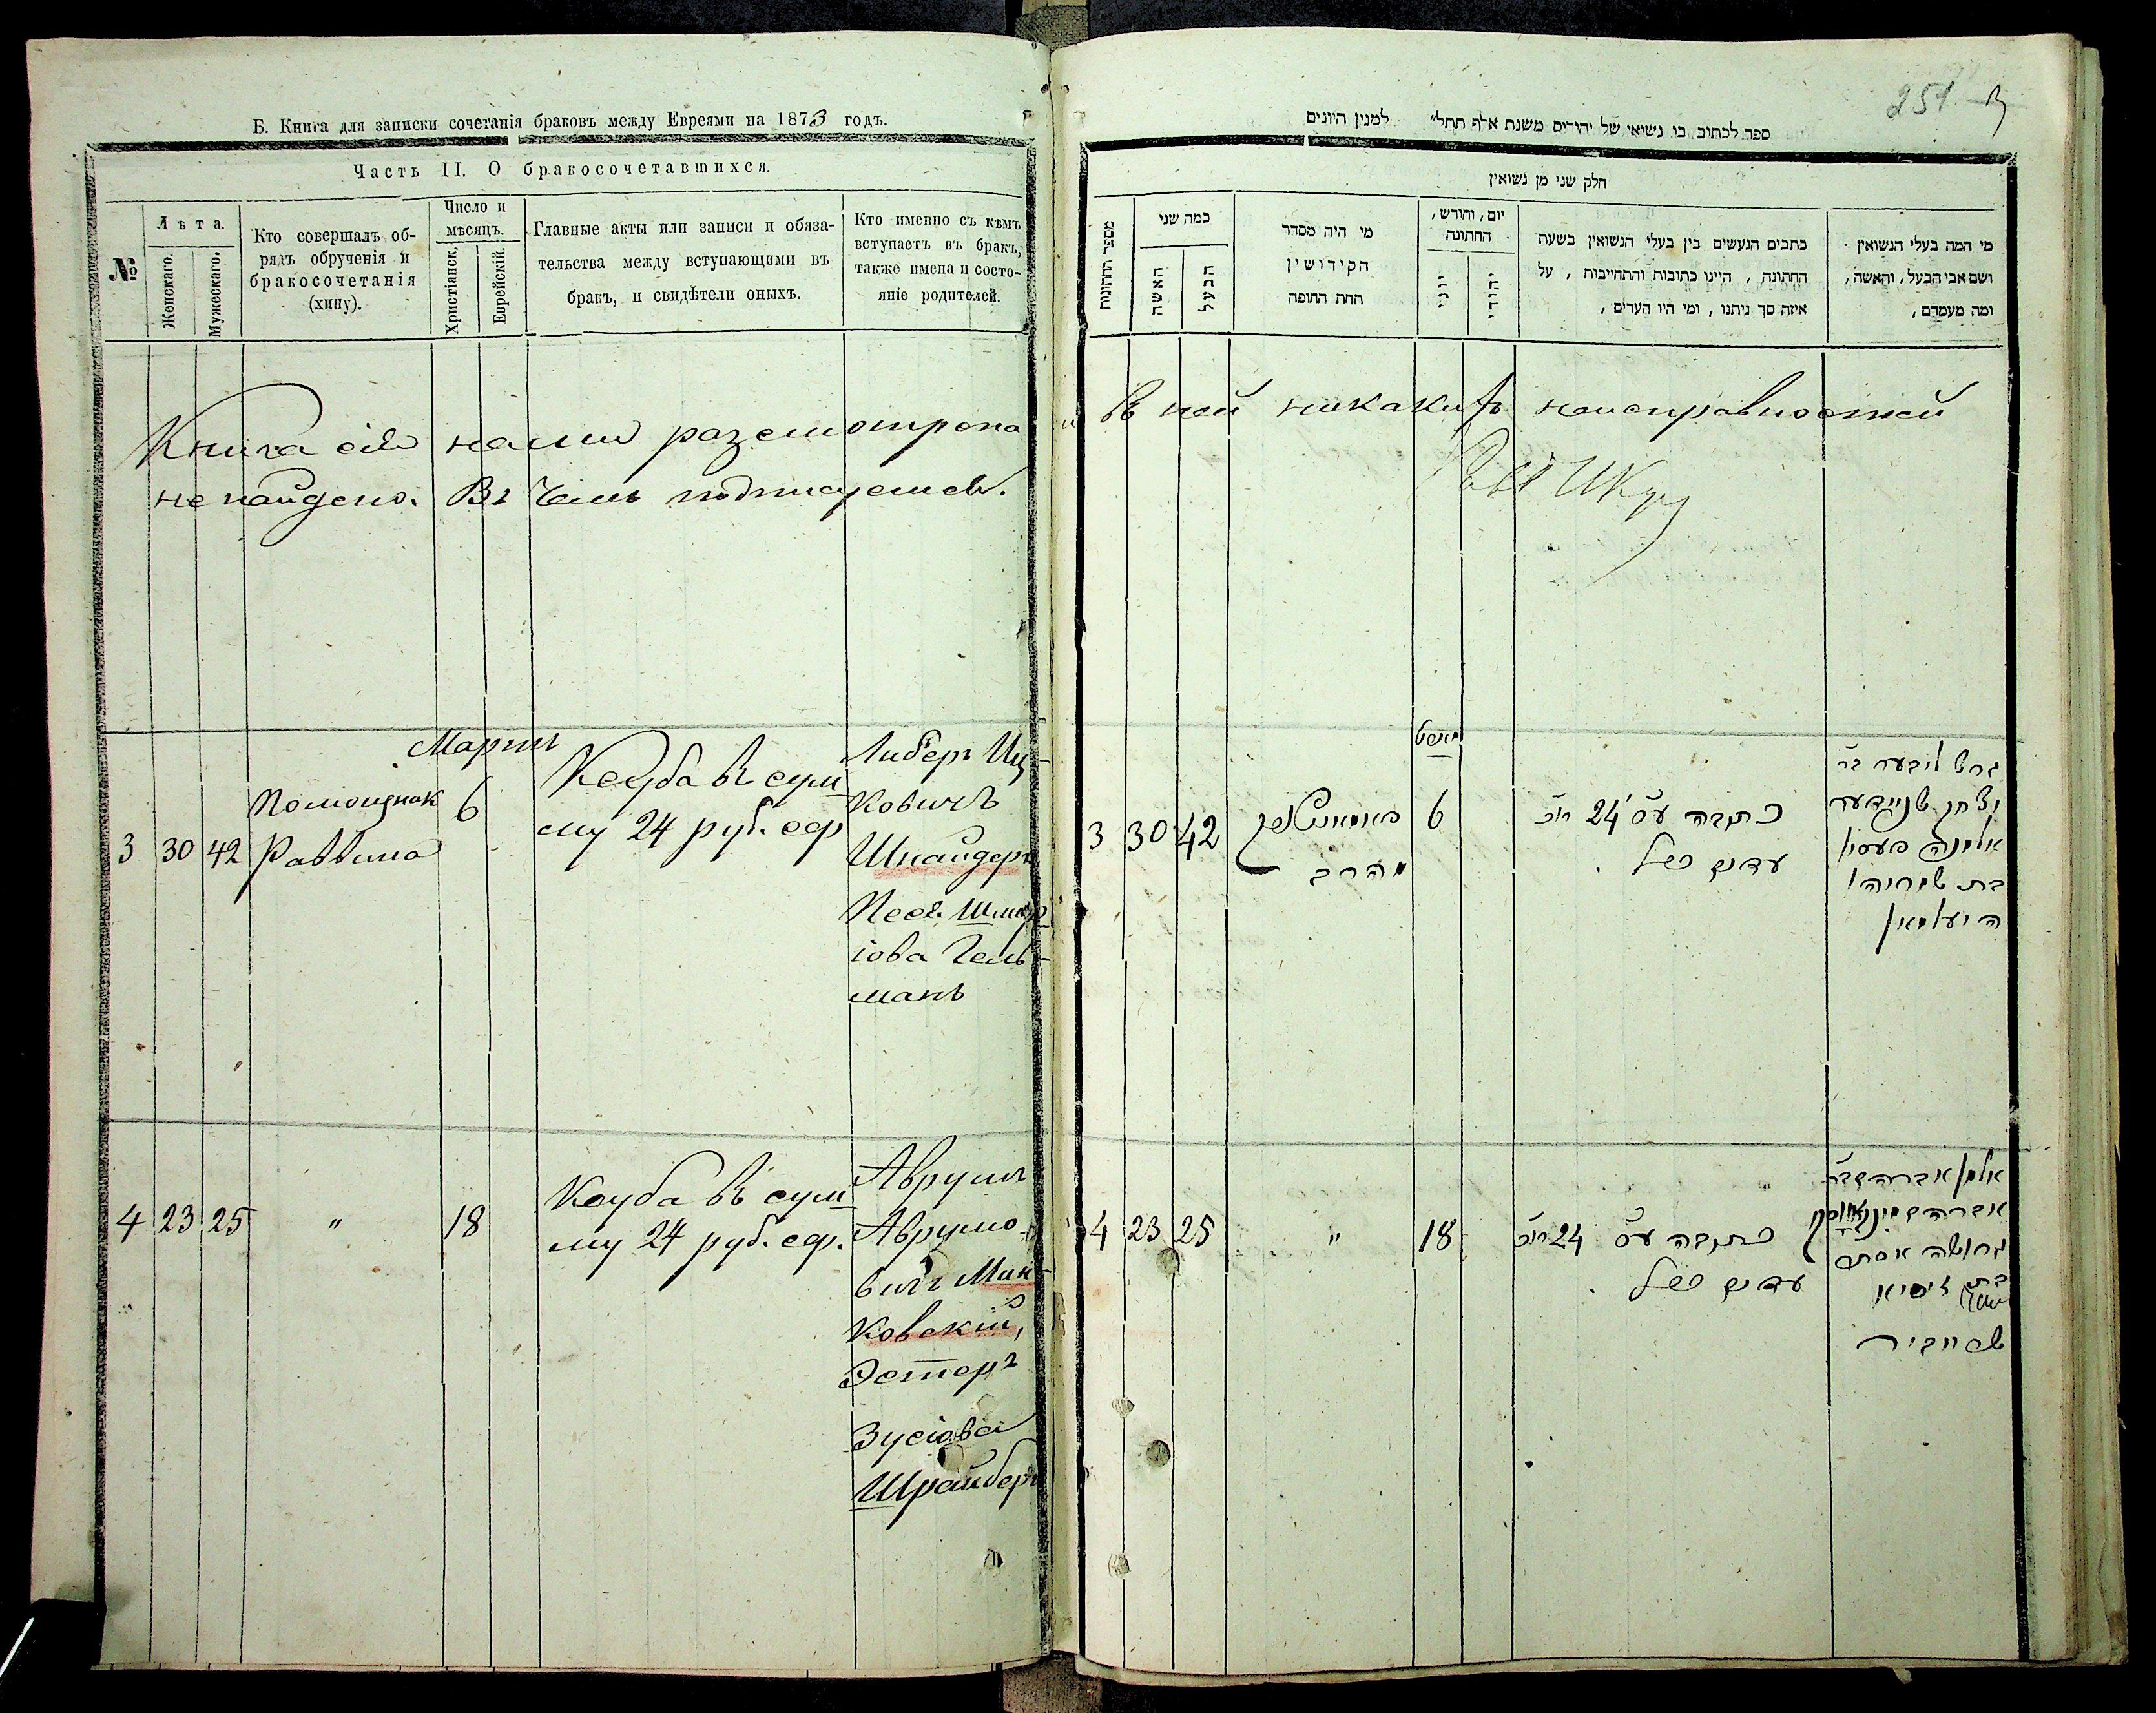 Б. Книга для записки сочетанія браковъ между Евреями на 1873 годъ.
Часть II. О бракосочетавшихся.
№
Лѣта.
Женскаго.
Мужескаго.
Кто совершалъ об-
рядъ обрученія и
бракосочетанія
(хипу).
Число и
мѣсяцъ.
Христіанск.
Еврейскій.
Главные акты или записи и обяза-
тельства между вступающими въ
бракъ, и свидѣтели оныхъ.
Кто именно съ кѣмъ
вступаетъ въ бракъ,
также имена и состо-
яніе родителей.
Книга сія нами разсмотрена
не найдено. Въ чемъ подписуемся.
Мартъ
3 30 42
Помощник
Раввина
6
Ксуба въ сум
му 24 руб. сер
Либеръ Иц-
ковичъ
Шнайдеръ
Песя Шмар
іова Гель-
манъ
4 23 25 " 18
Ксуба въ сум
му 24 руб. сер.
Аврумъ
Аврумо-
вичъ Мин-
ковскій,
Эстеръ
Зусіова
Шрайберъ
251
ספר לכתוב בו נשואי של יהודים משנת אלף תתל״ למנין היונים
חלק שני מן נשואין
מספר החתונות
כמה שני
האשה
הבעל
מי היה מסדר
הקידושין
תחת החופה
יום, וחודש,
החתונה
יוני
יהודי
כתבים הנעשים בין בעלי הנשואין בשעת
החתונה, היינו כתובות והתחייבות, על
איזה סך ניתנו, ומי היו העדים,
מי המה בעלי הנשואין
ושם אבי הבעל, והאשה,
ומה מעמדם,
и въ ней никакихъ неисправностей
מארט
3 30 42
הרב
6
כתובה ע״ס 24 רו״כ
עדים כנ״ל
גרוש ליבער ב״ר
יצחק שניידער
אלמנה פעסיא
בת שמריהו
העלמאן
4 23 25 " 18
כתובה ע״ס 24 רו״כ
עדים כנ״ל
אלמן אברהם ב״ר
אברהם מינקאווסקי
גרושה אסתר
בת זיסיא
שרייבער